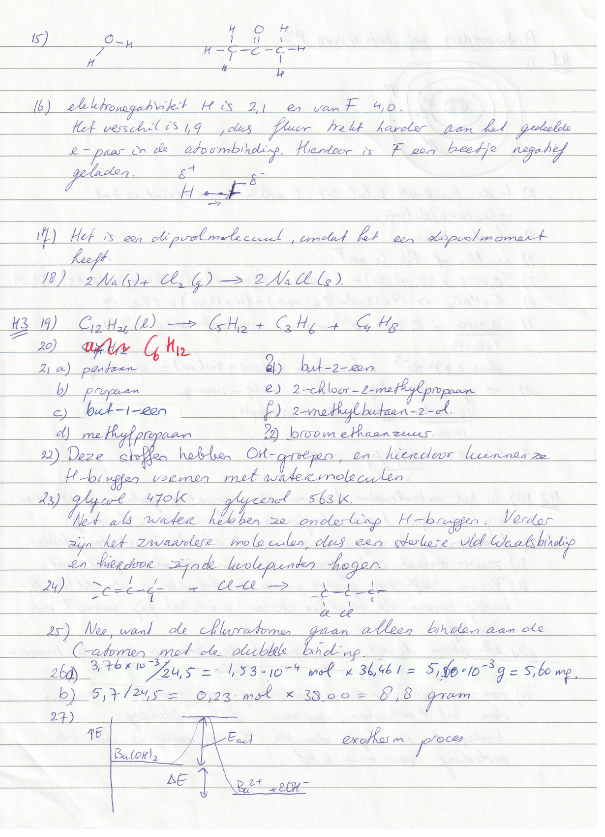 15) O-H H H O H H-C-C-C-H H H
16) elektronegativiteit H is 2,1 en van F 4,0.
Het verschil is 1,9, dus fluor trekt harder aan het gedeelde
e-paar in de atoombinding. Hierdoor is F een beetje negatief
geladen. δ+ δ-
H F
17) Het is een dipoolmolecuul, omdat het een dipoolmoment
heeft.
18) 2 Na(s) + Cl2(g) → 2 NaCl(s).
H3 19) C12H26(l) → C5H12 + C3H6 + C4H8
20) C6H12
21, a) pentaan but-2-een.
b) propaan e) 2-chloor-2-methylpropaan
c) but-1-een f) 2-methylbutaan-2-ol.
d) methylpropaan broomethaanzuur
22) Deze stoffen hebben OH-groepen, en hierdoor kunnen ze
H-bruggen vormen met watermoleculen
23) glycol 470K glycerol 563K.
Net als water hebben ze onderling H-bruggen. Verder
zijn het zwaardere moleculen, dus een sterkere vld Waalsbinding
en hierdoor zijn de kookpunten hoger.
24) C=C-C- + Cl-Cl → -C-C-C- Cl Cl
25) Nee, want de chlooratomen gaan alleen binden aan de
C-atomen met de dubbele binding.
26a) 3,76 x 10-3/24,5 = 1,53·10-4 mol x 36,461 = 5,60·10-3 g = 5,60 mg.
b) 5,7/24,5 = 0,23 mol x 38,00 = 8,8 gram
27)
↑E Eact exotherm proces
Ba(OH)2
ΔE Ba2+ + 2OH-